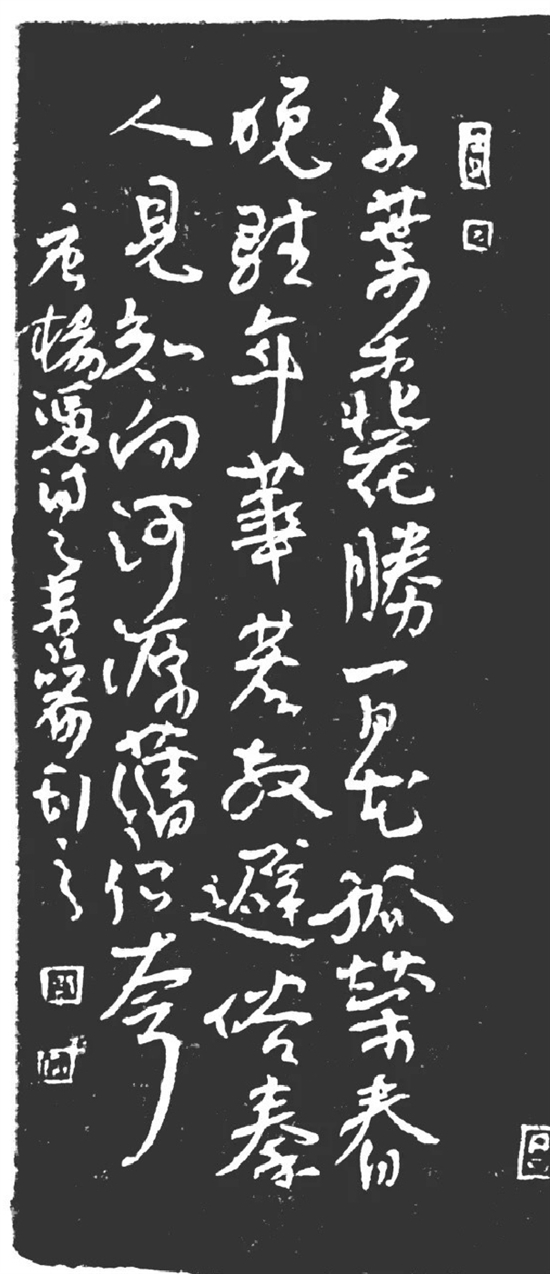 千葉桃花勝百花孤榮春
晚駐年華若教避俗秦
人見知向河源舊侶夸
唐楊憑詩之書刻之